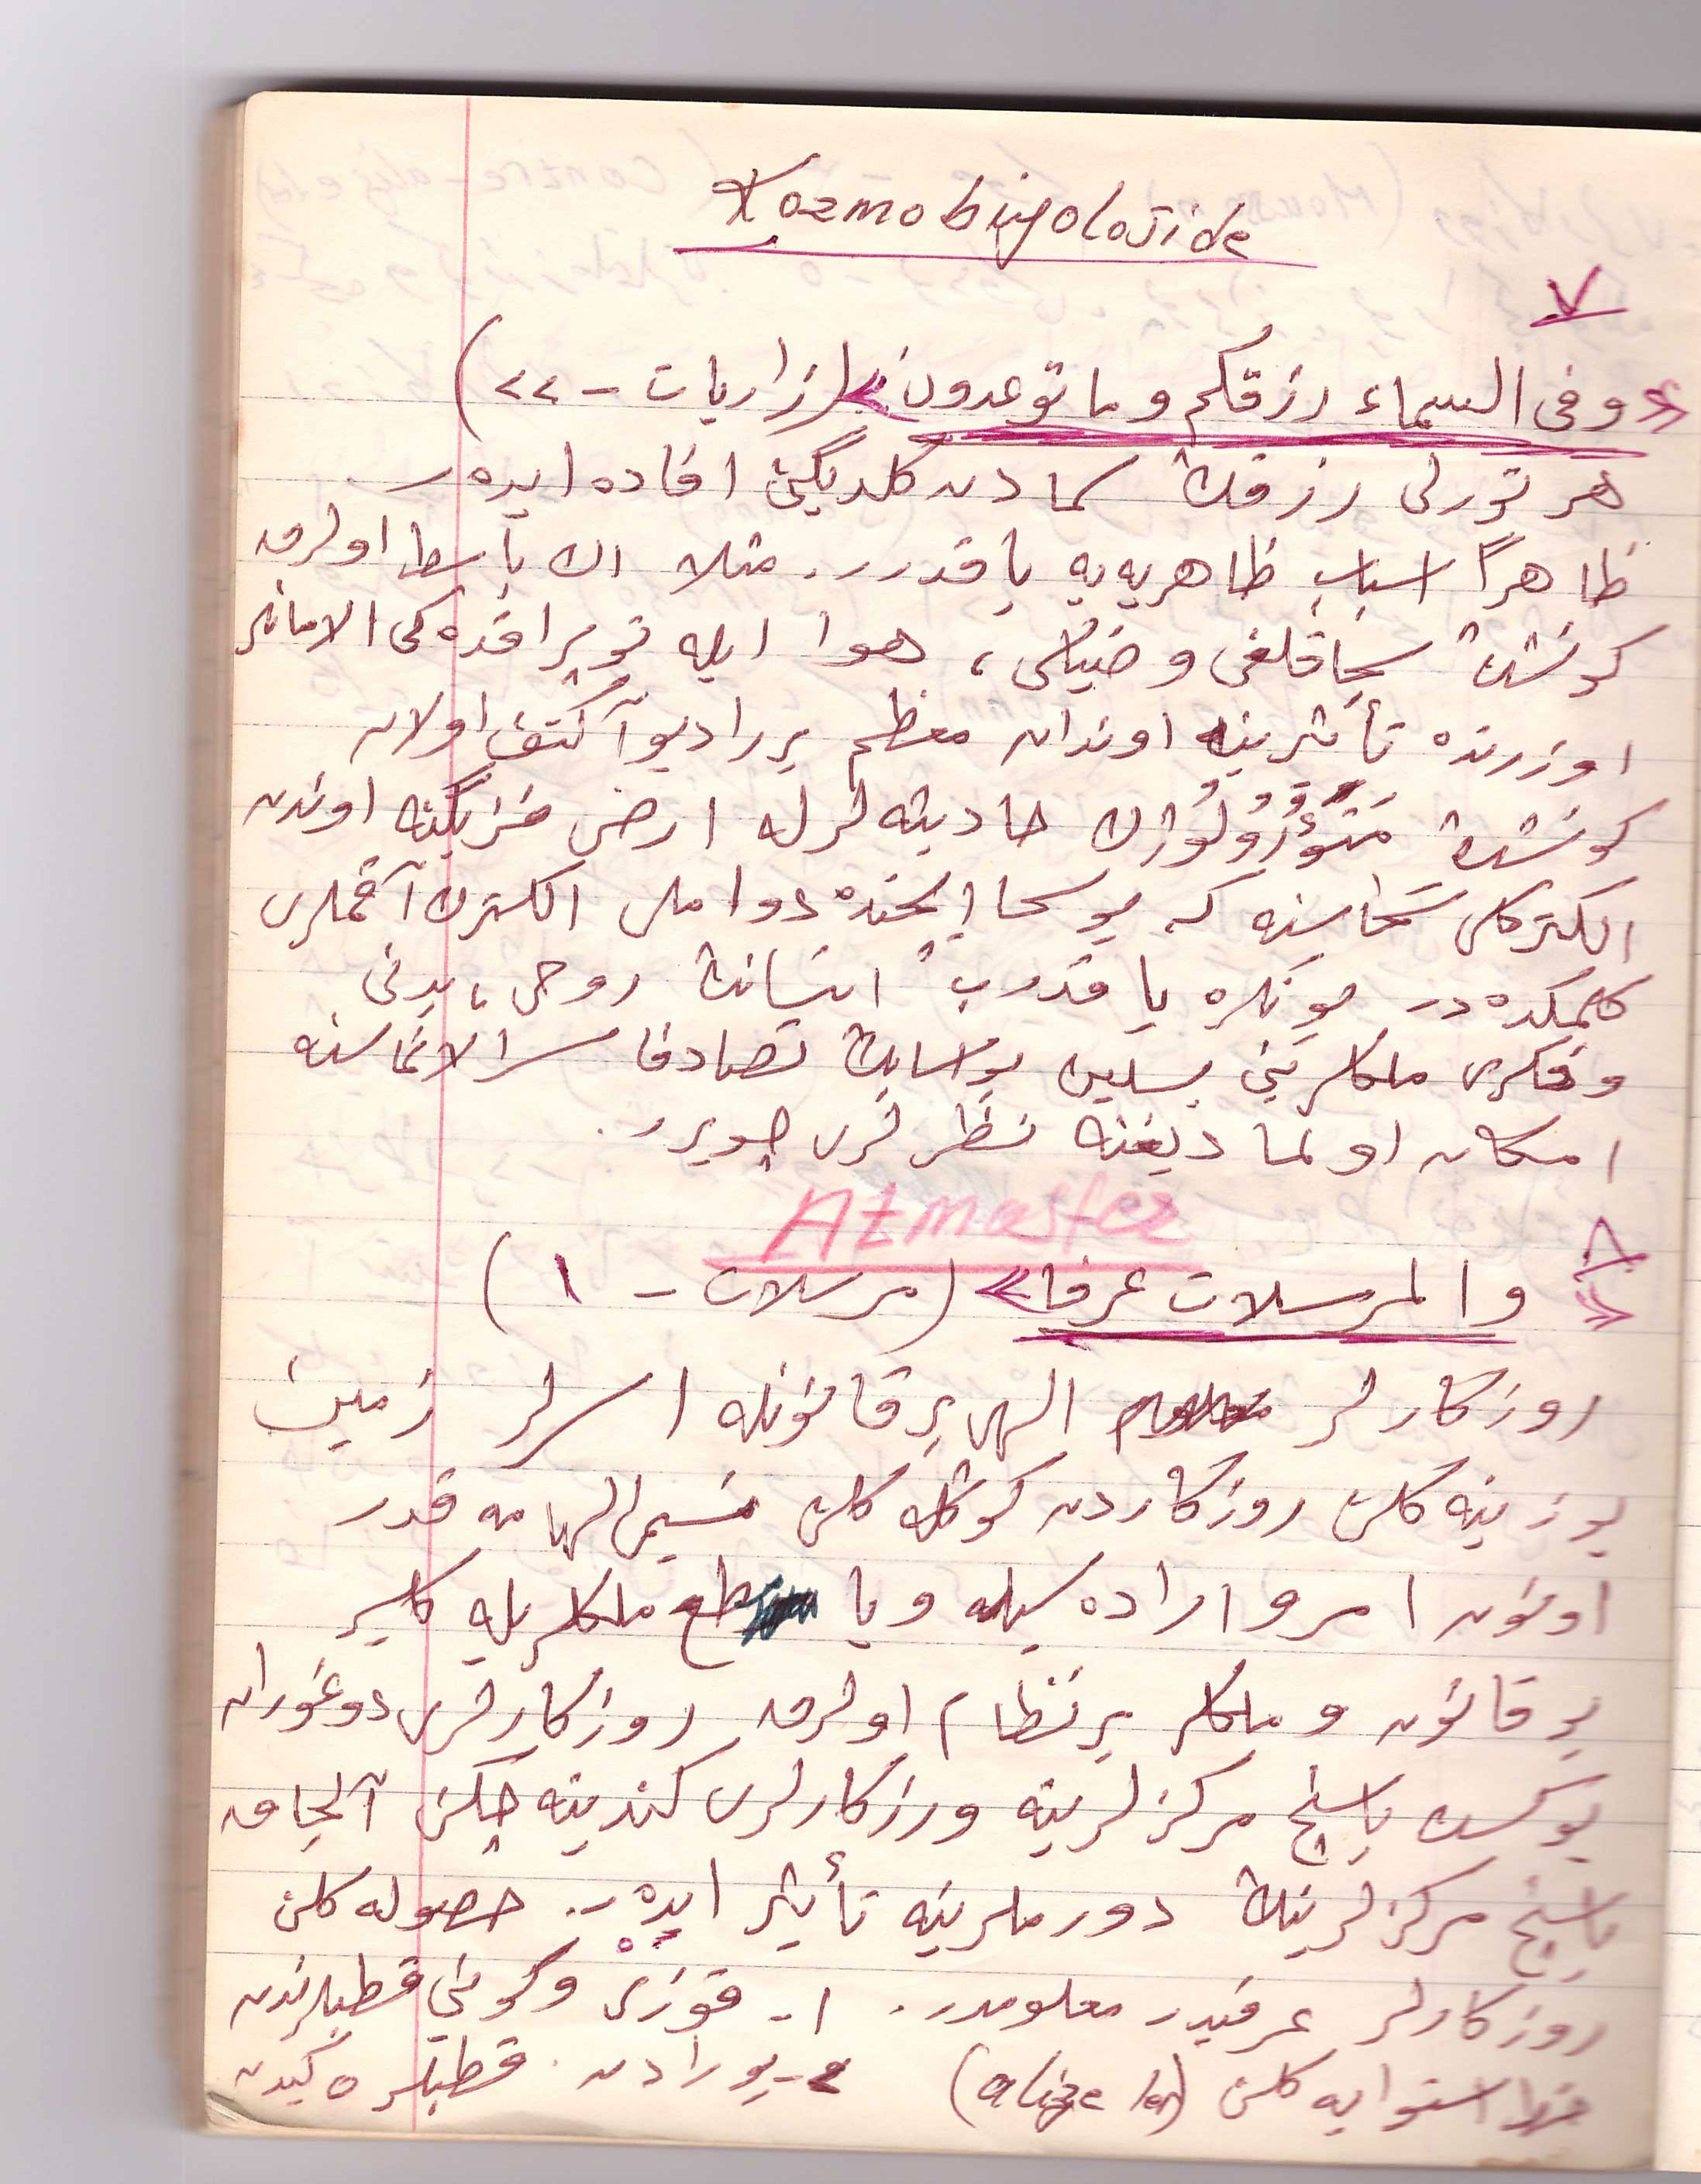 Kozmobiyolojide
٧
«وفى السماء رزقكم وما توعدون» (زاريات - ٢٢)
هر تورلى رزقڭ سمادن كلديگنى افاده ايدر
ظاهراً اسباب ظاهريه يه باقدرر. مثلا اڭ باسط اولرق
كونشڭ سجاقلغى و ضياسى، هوا ايله توپراقده كى الامانلر
اوزرنده تأثرينه اوندان معظم بر راديوآكتف اولان
كونشڭ حاديثه لرله ارض فزيگنه اوندن
الكتركلى سحاسنه كه بو سحا ايچنده دواملى الكترك آقملرى
كلمكده در بونلره باقدرب انسانڭ روحى، بدنى
و فكرى ملكلرينى بسلين بو تصادفا سرالانماسنه
امكان اولماديغنه نظرلرى چويرر.
Atmosfer
٨
«والمرسلات عرفا» (مرسلات - ١)
روزكارلر الهى بر قانونله اسرلر زمين
يوزينه كلن روزكاردن كوڭله كلن نسيم الهامه قدر
اونون امر و اراده سيله ويا ملكلريله كلير
بو قانون و ملكلر بر نظام اولرق روزكارلرى دوغوران
يوكسك باسنچ مركزلرينه و رزكارلرى كندينه چكن آلچاق
باسنچ مركزلرينڭ دورملرينه تأثير ايدر. حصوله كلن
روزكارلر عرفيدر معلومدر. ١- قوزى و گونى قطبلرندن
خط استوايه كلن (alize ler) ٢- بورادن قطبلره گيدن